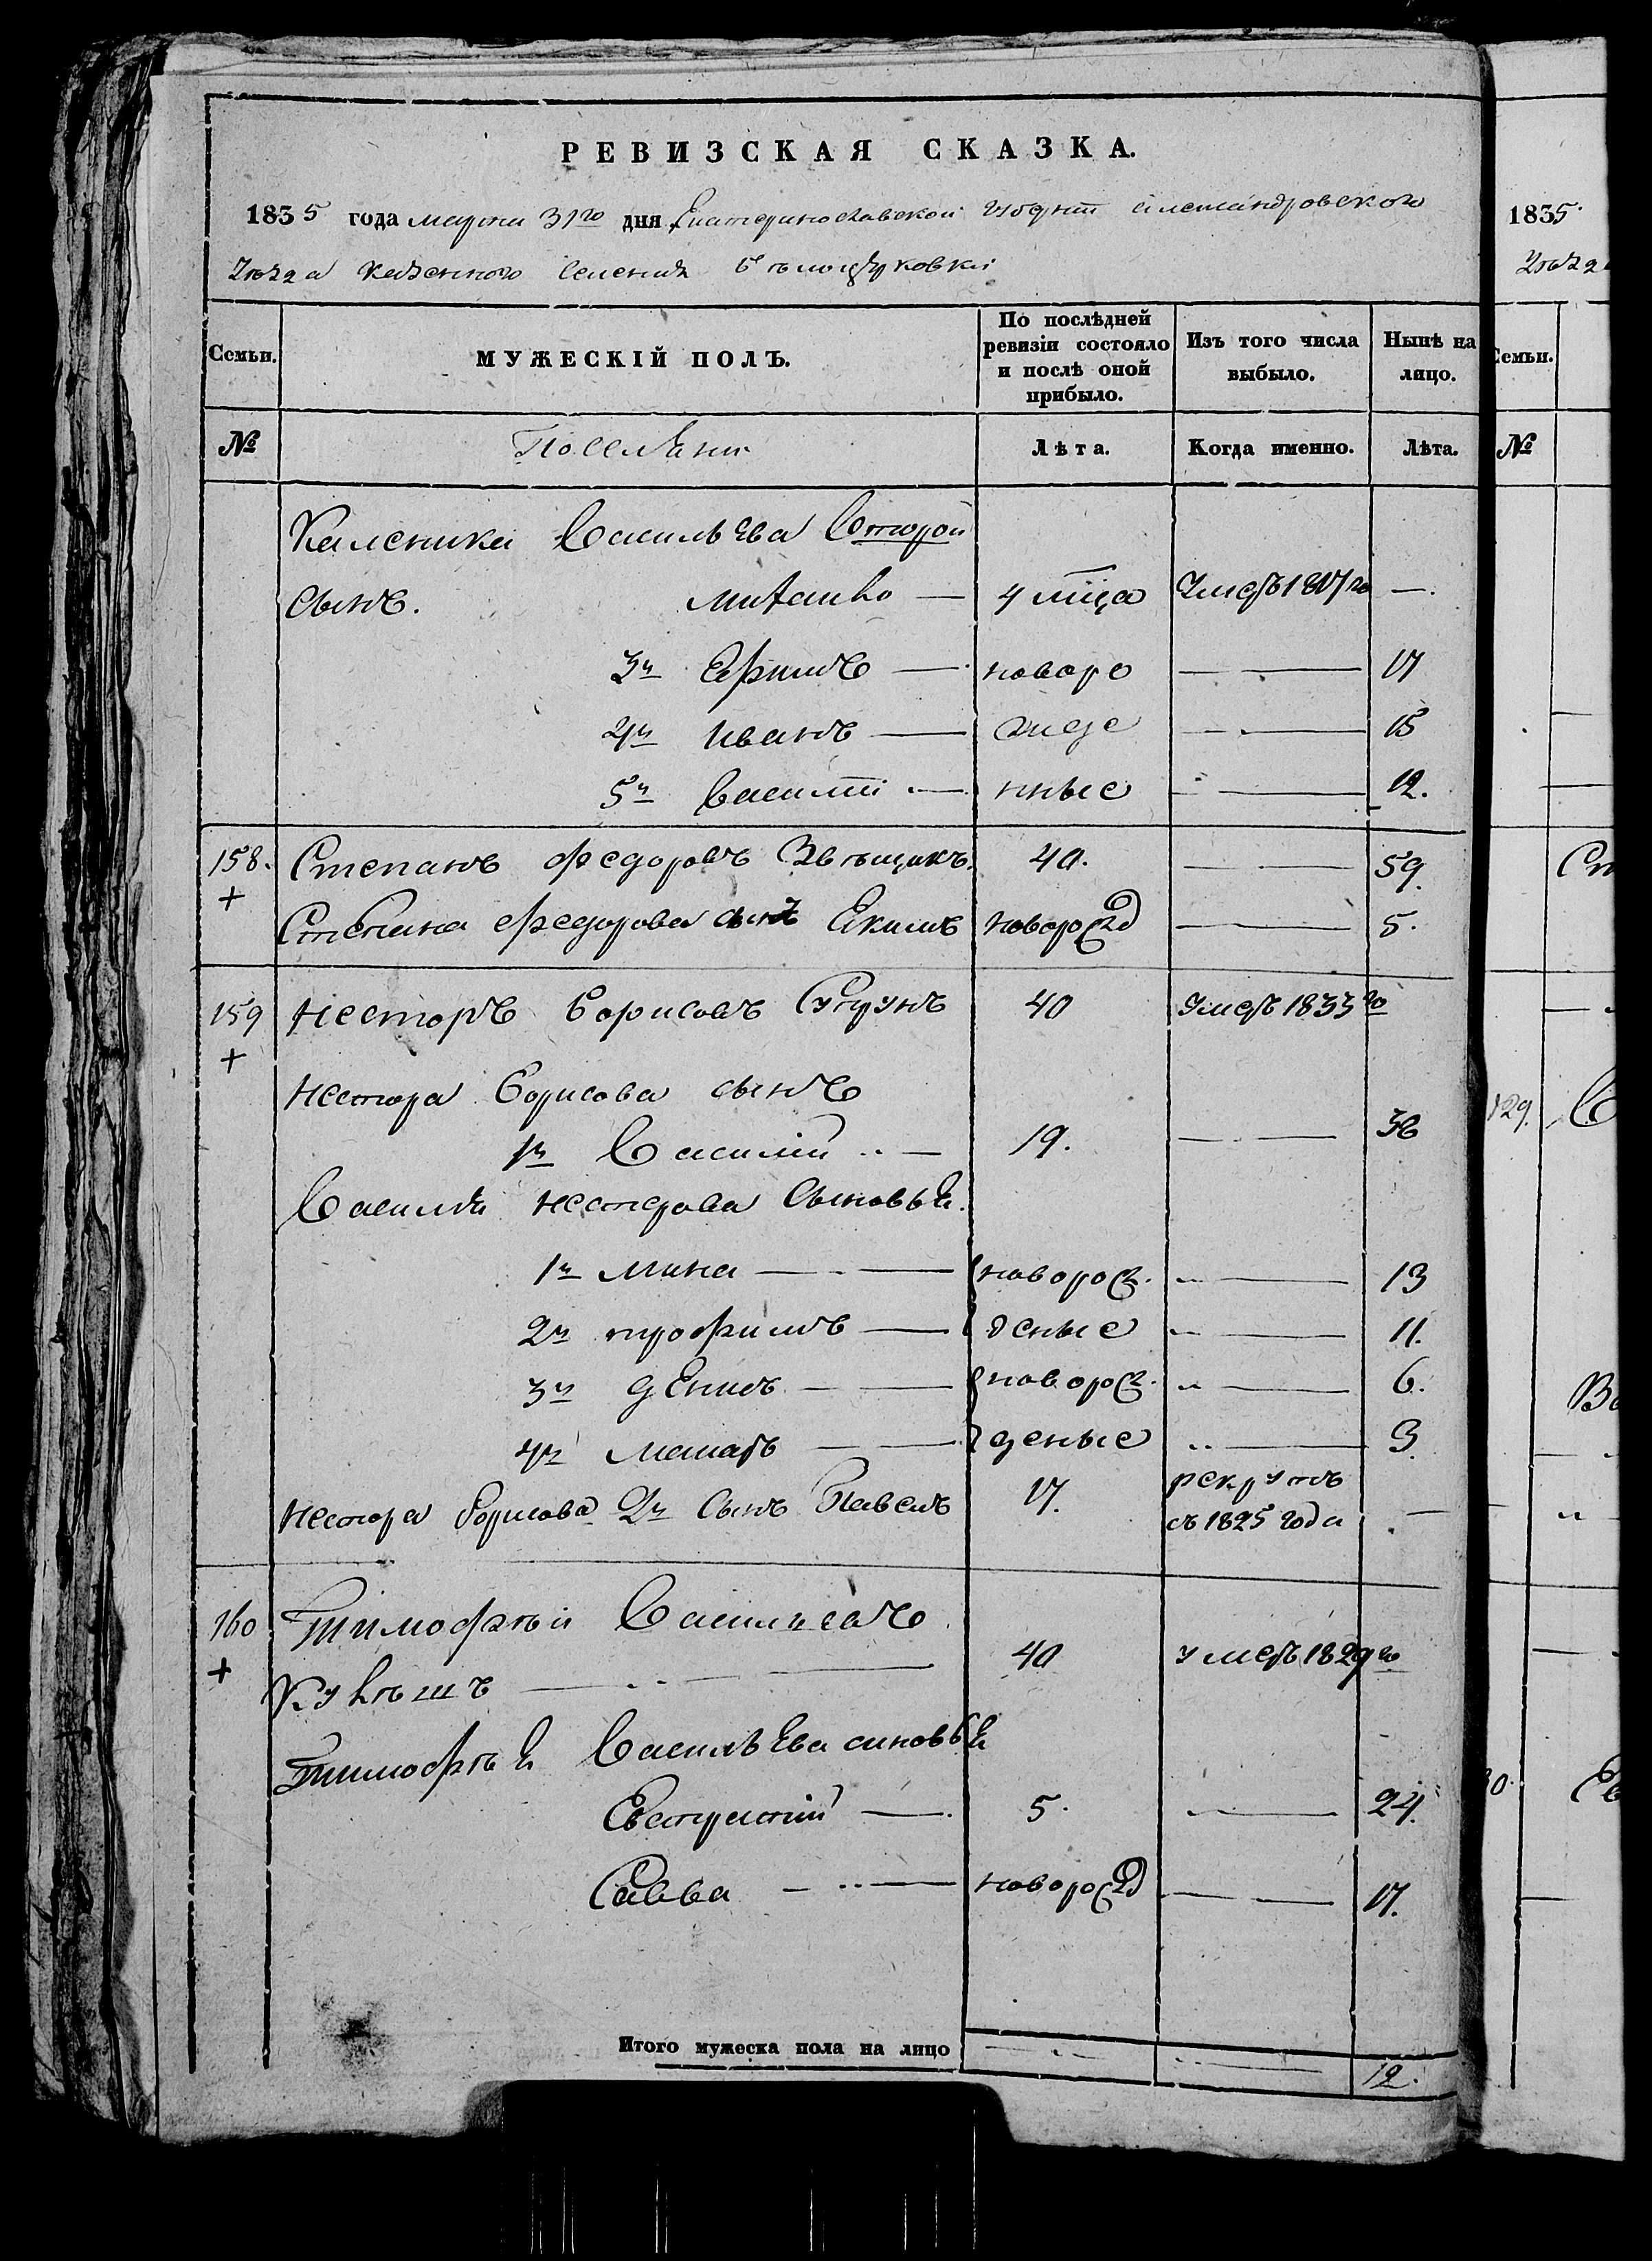 РЕВИЗСКАЯ СКАЗКА.
1835 года марта 31го дня Екатеринославской Губерніи Александровского
Уезда казенного Селенія Белоцерковки
Семьи. МУЖЕСКІЙ ПОЛЪ. По послѣдней ревизіи состояло и послѣ оной прибыло. Изъ того числа выбыло. Нынѣ на лицо.
№ Поселяни Лѣта. Когда именно. Лѣта.
Каленика Васильева Второй
сынъ. Михайло — 4 мца Умеръ 1817го —.
3й Ефимъ — новоро — 17
4й Иванъ — жде — 15
5й Василій — нные — 12.
158. Степанъ Федоровъ 40. — 59.
+
Степана Федорова сынъ Екимъ новорожд — 5.
159 Несторъ Борисовъ 40 Умеръ 1833го
+
Нестора Борисова сынъ
1й Василій — 19. — 38
Василія Нестерова Сыновья.
1й Мина — новорож. — 13
2й трофимъ — деные — 11.
3й Денисъ — новорож. — 6.
4й — деные — 3
Нестора Борисова 2й Сынъ Павелъ 17. рекрутъ
съ 1825 года —
160 Тимофѣй Васильевъ
+ 40 умеръ 1829го
Тимофѣя Васильева синовья
Евстратій — 5. — 24.
Савва — новорожд — 17.
Итого мужеска пола на лицо 12.
1835.
Уезда
Семьи.
№
Ст
129.